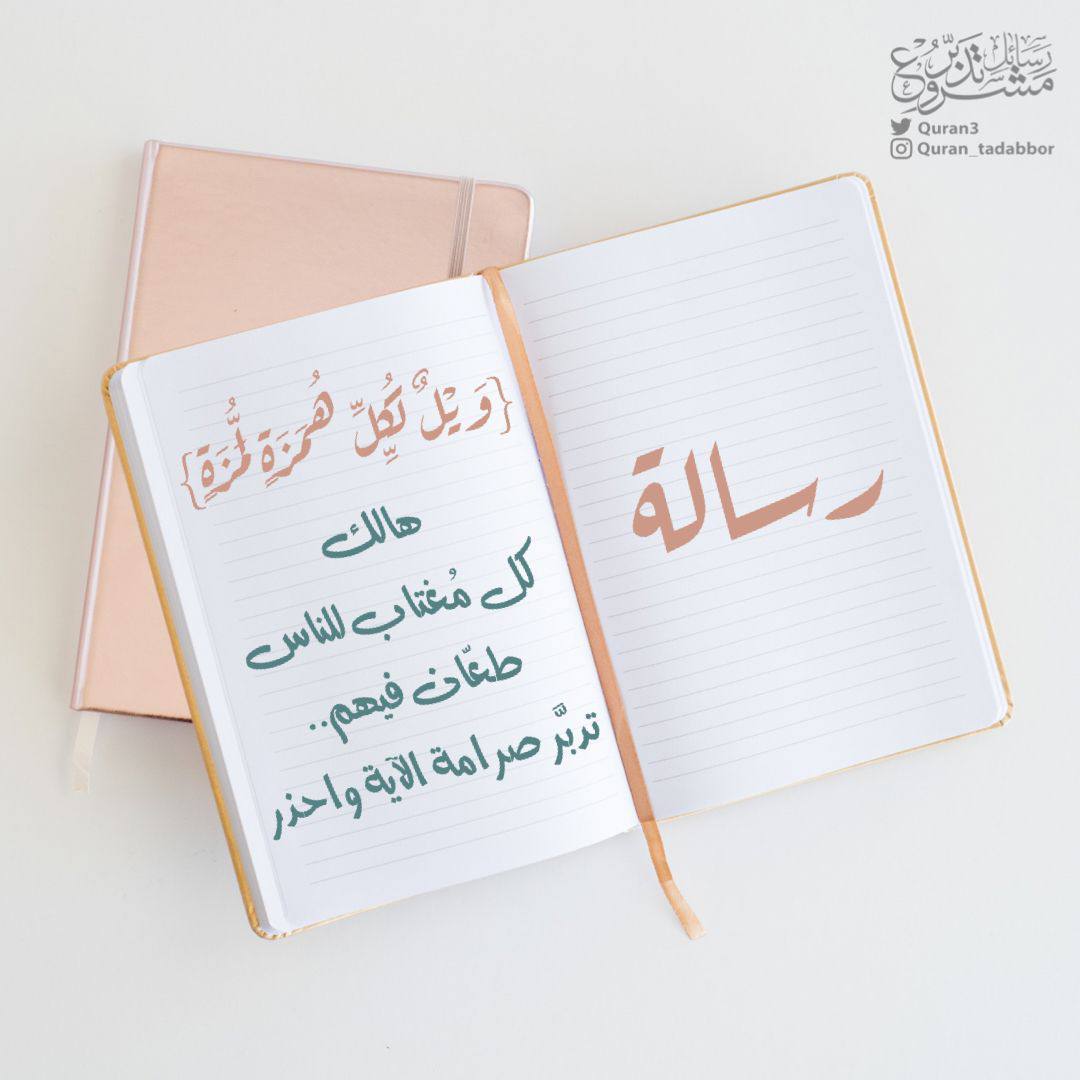 رسائل تدبر
مشروع
Quran3
Quran_tadabbor
رسالة
{وَيْلٌ لِّكُلِّ هُمَزَةٍ لُّمَزَةٍ}
هالك
كل مُغتاب للناس
طعّان فيهم..
تدبَّر صرامة الآية واحذر